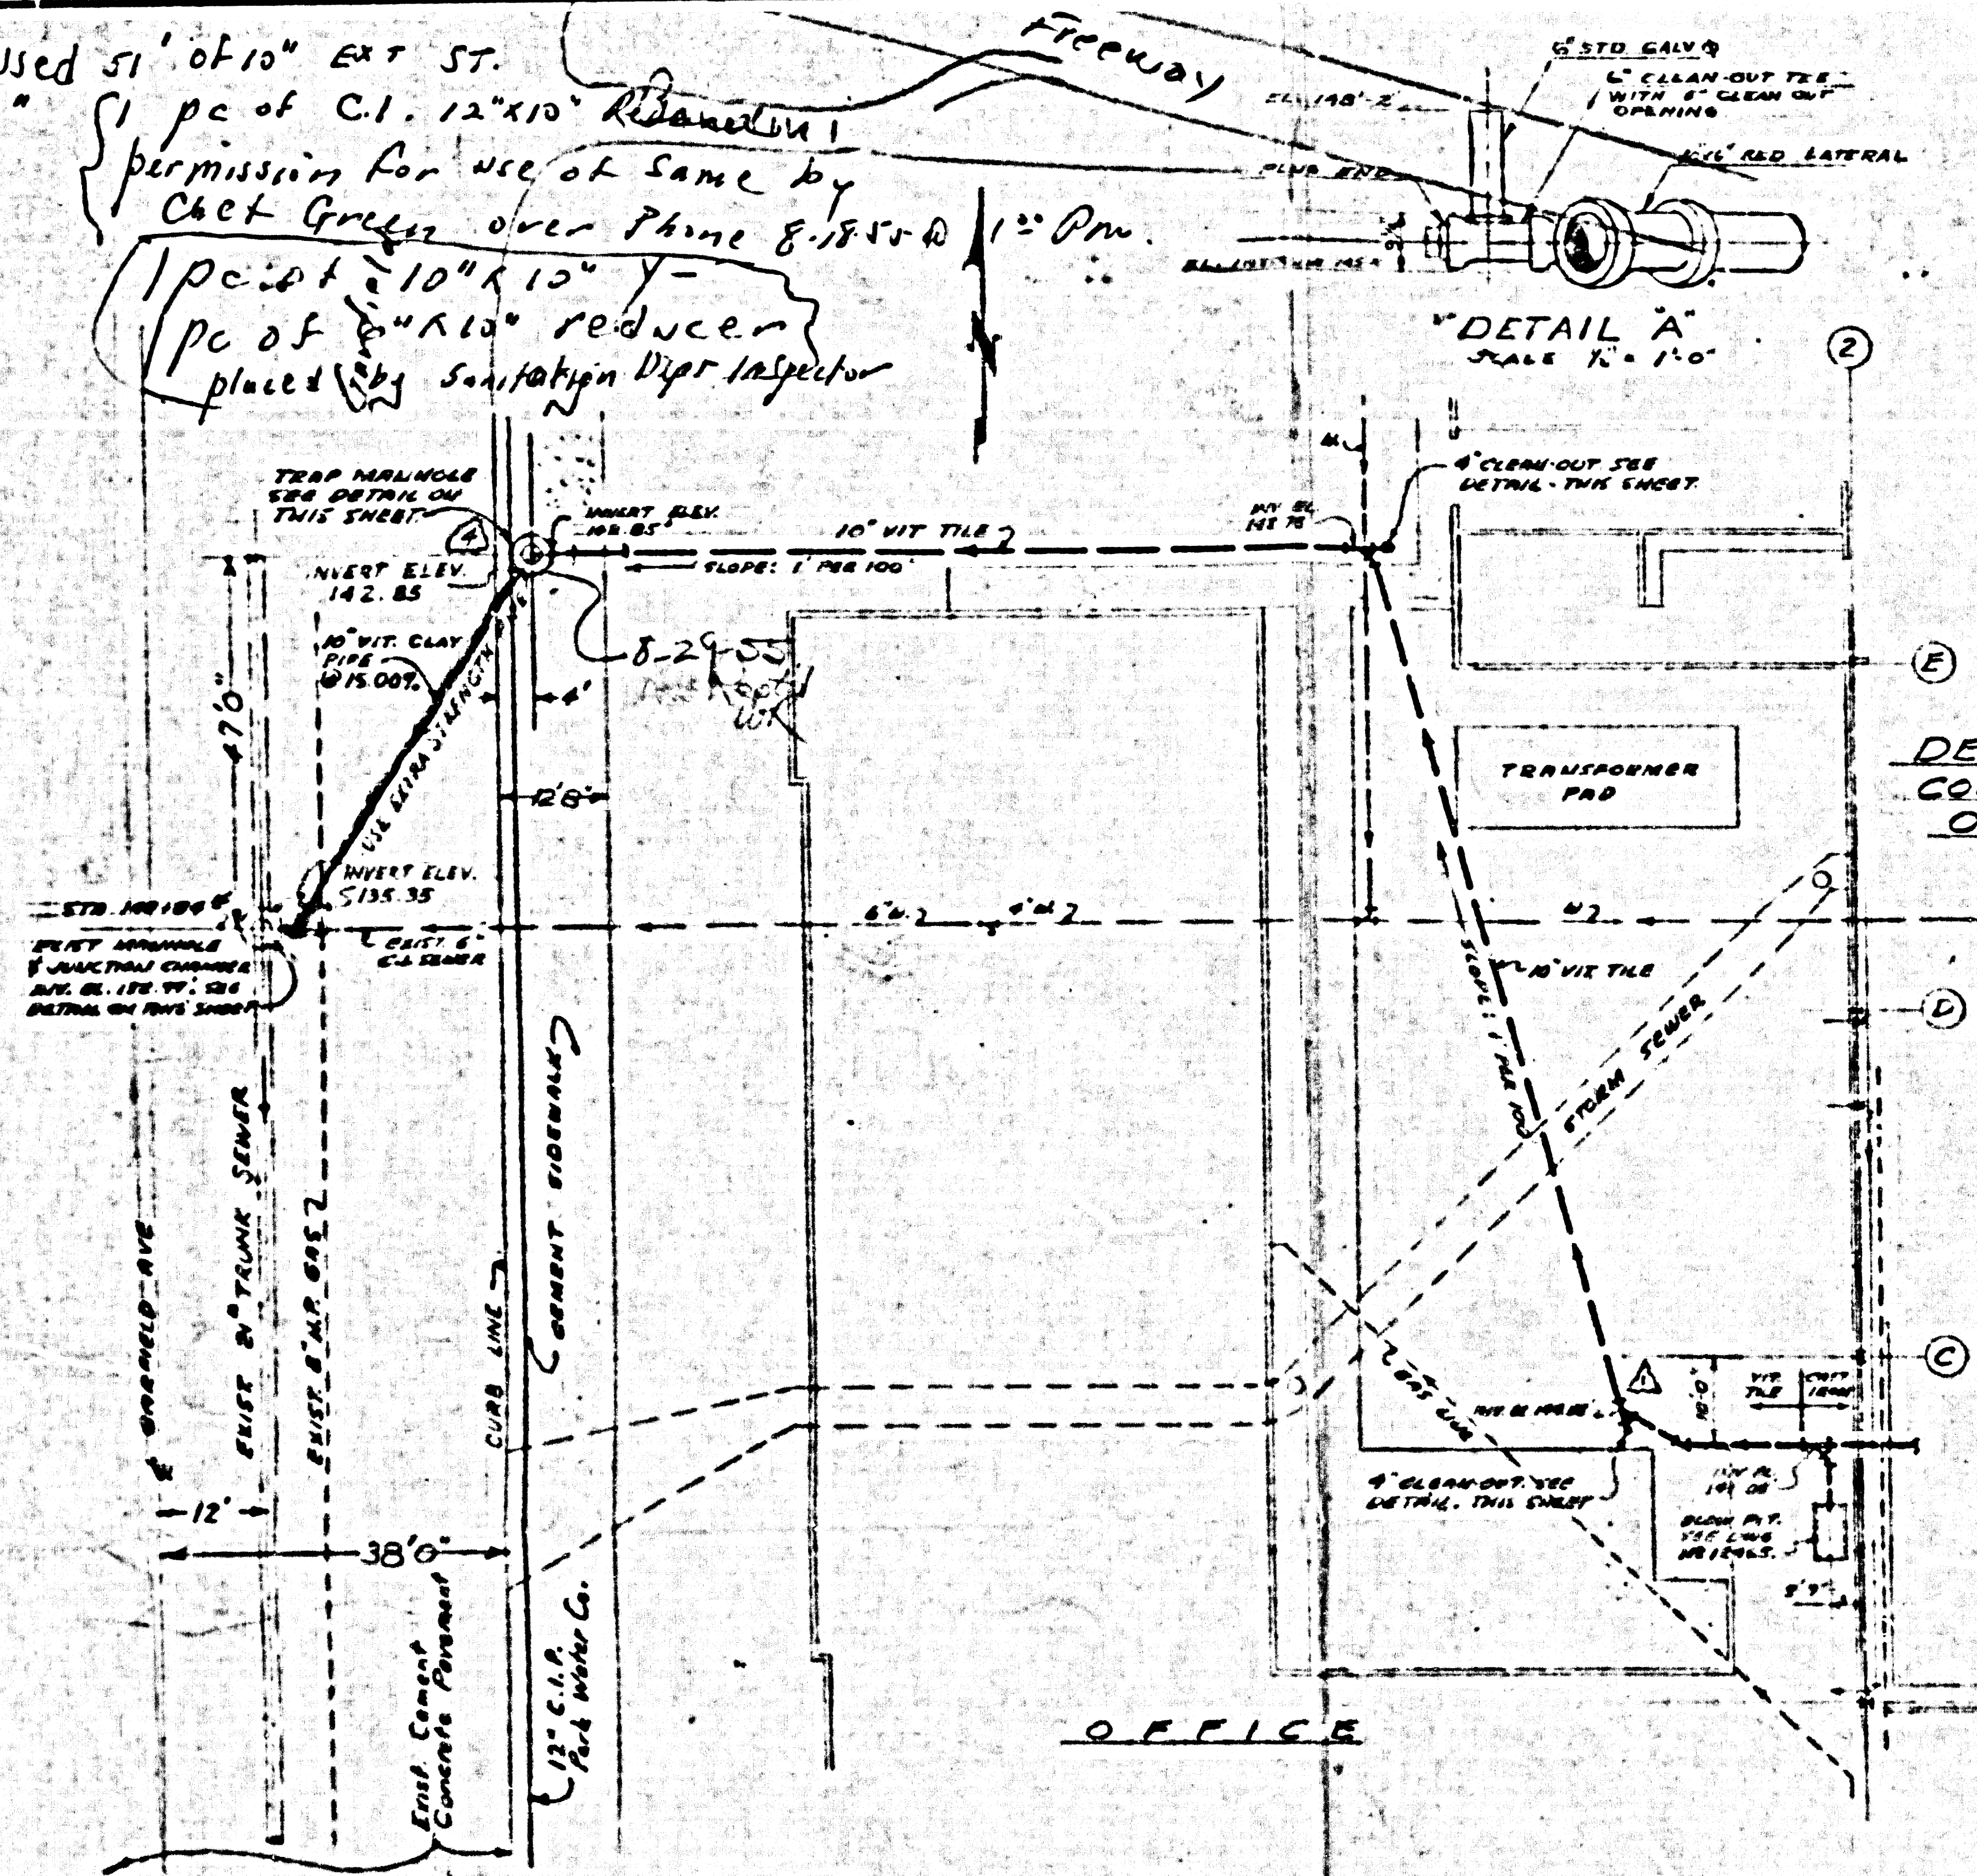 used 51' of 10" EXT ST.
" 1 pc of C.I. 12"x10"
permission for use of same by
Chet Green over Phone 8-18-55 @ 1:00 Pm.
1 pc of 10" x 10" Y-
1 pc of x 10" reducer
placed by Sanitation Dept Inspector
Freeway
6" STD GALV
6" CLEAN-OUT TEE
WITH 6" CLEAN OUT
OPENING
EL. 148'-2
PLUG END
RED LATERAL
DETAIL "A"
2
TRAP MANHOLE
SEE DETAIL ON
THIS SHEET
4
INVERT ELEV.
142.85
INVERT ELEV.
10" VIT TILE
SLOPE: 1' PER 100'
INV EL
4" CLEAN-OUT SEE
DETAIL - THIS SHEET
10" VIT. CLAY
PIPE
@ 15.00%
USE EXTRA STRENGTH
47'0"
8-29-55
4'
12'8"
E
TRANSFORMER
PAD
DE
CO
O
INVERT ELEV.
135.35
STA.
EXIST MANHOLE
& JUNCTION CHAMBER
SEE
DETAIL ON THIS SHEET
EXIST. 6"
C.I. SEWER
6" W.
4" W.
W
10" VIT TILE
SLOPE: 1' PER 100'
STORM SEWER
D
GARFIELD AVE
EXIST 21" TRUNK SEWER
EXIST. 8" M.P. GAS
CURB LINE
CEMENT SIDEWALK
C
1
10'-0"
VIT. TILE
CAST IRON
GAS LINE
4" CLEAN-OUT. SEE
DETAIL. THIS SHEET
INV EL
12'
38'0"
Exist. Cement
Concrete Pavement
12" C.I.P.
Park Water Co.
OFFICE